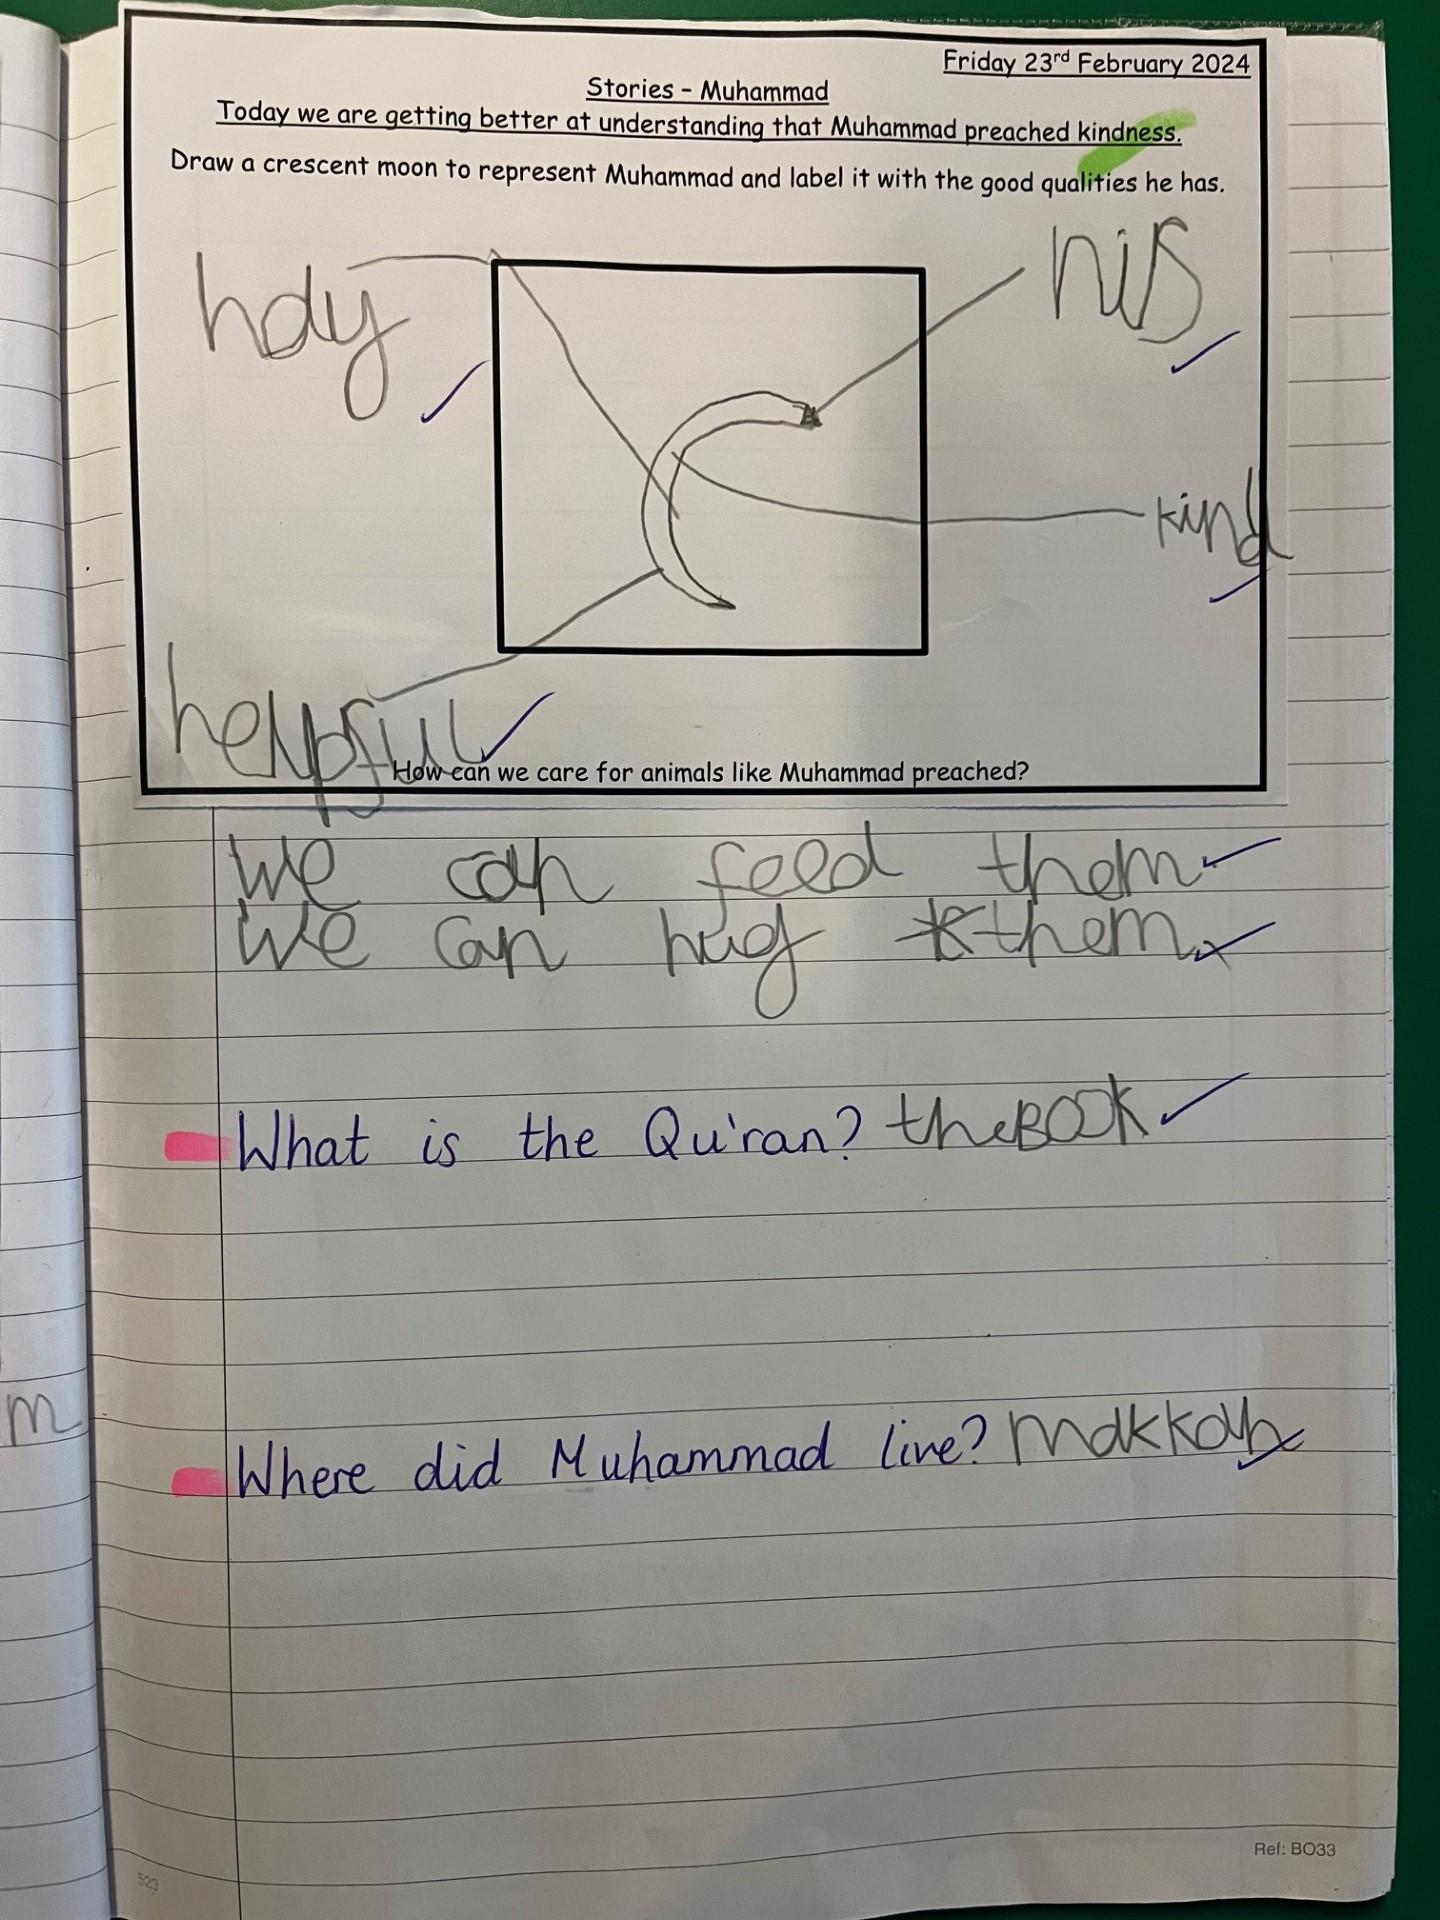 Friday 23rd February 2024
Stories - Muhammad
Today we are getting better at understanding that Muhammad preached kindness.
Draw a crescent moon to represent Muhammad and label it with the good qualities he has.
hdy
nis
kind
helpful
How can we care for animals like Muhammad preached?
We can feed them
We can hug them.
What is the Qu'ran? the BOOK
Where did Muhammad live? makkah
m
Ref: BO33
523